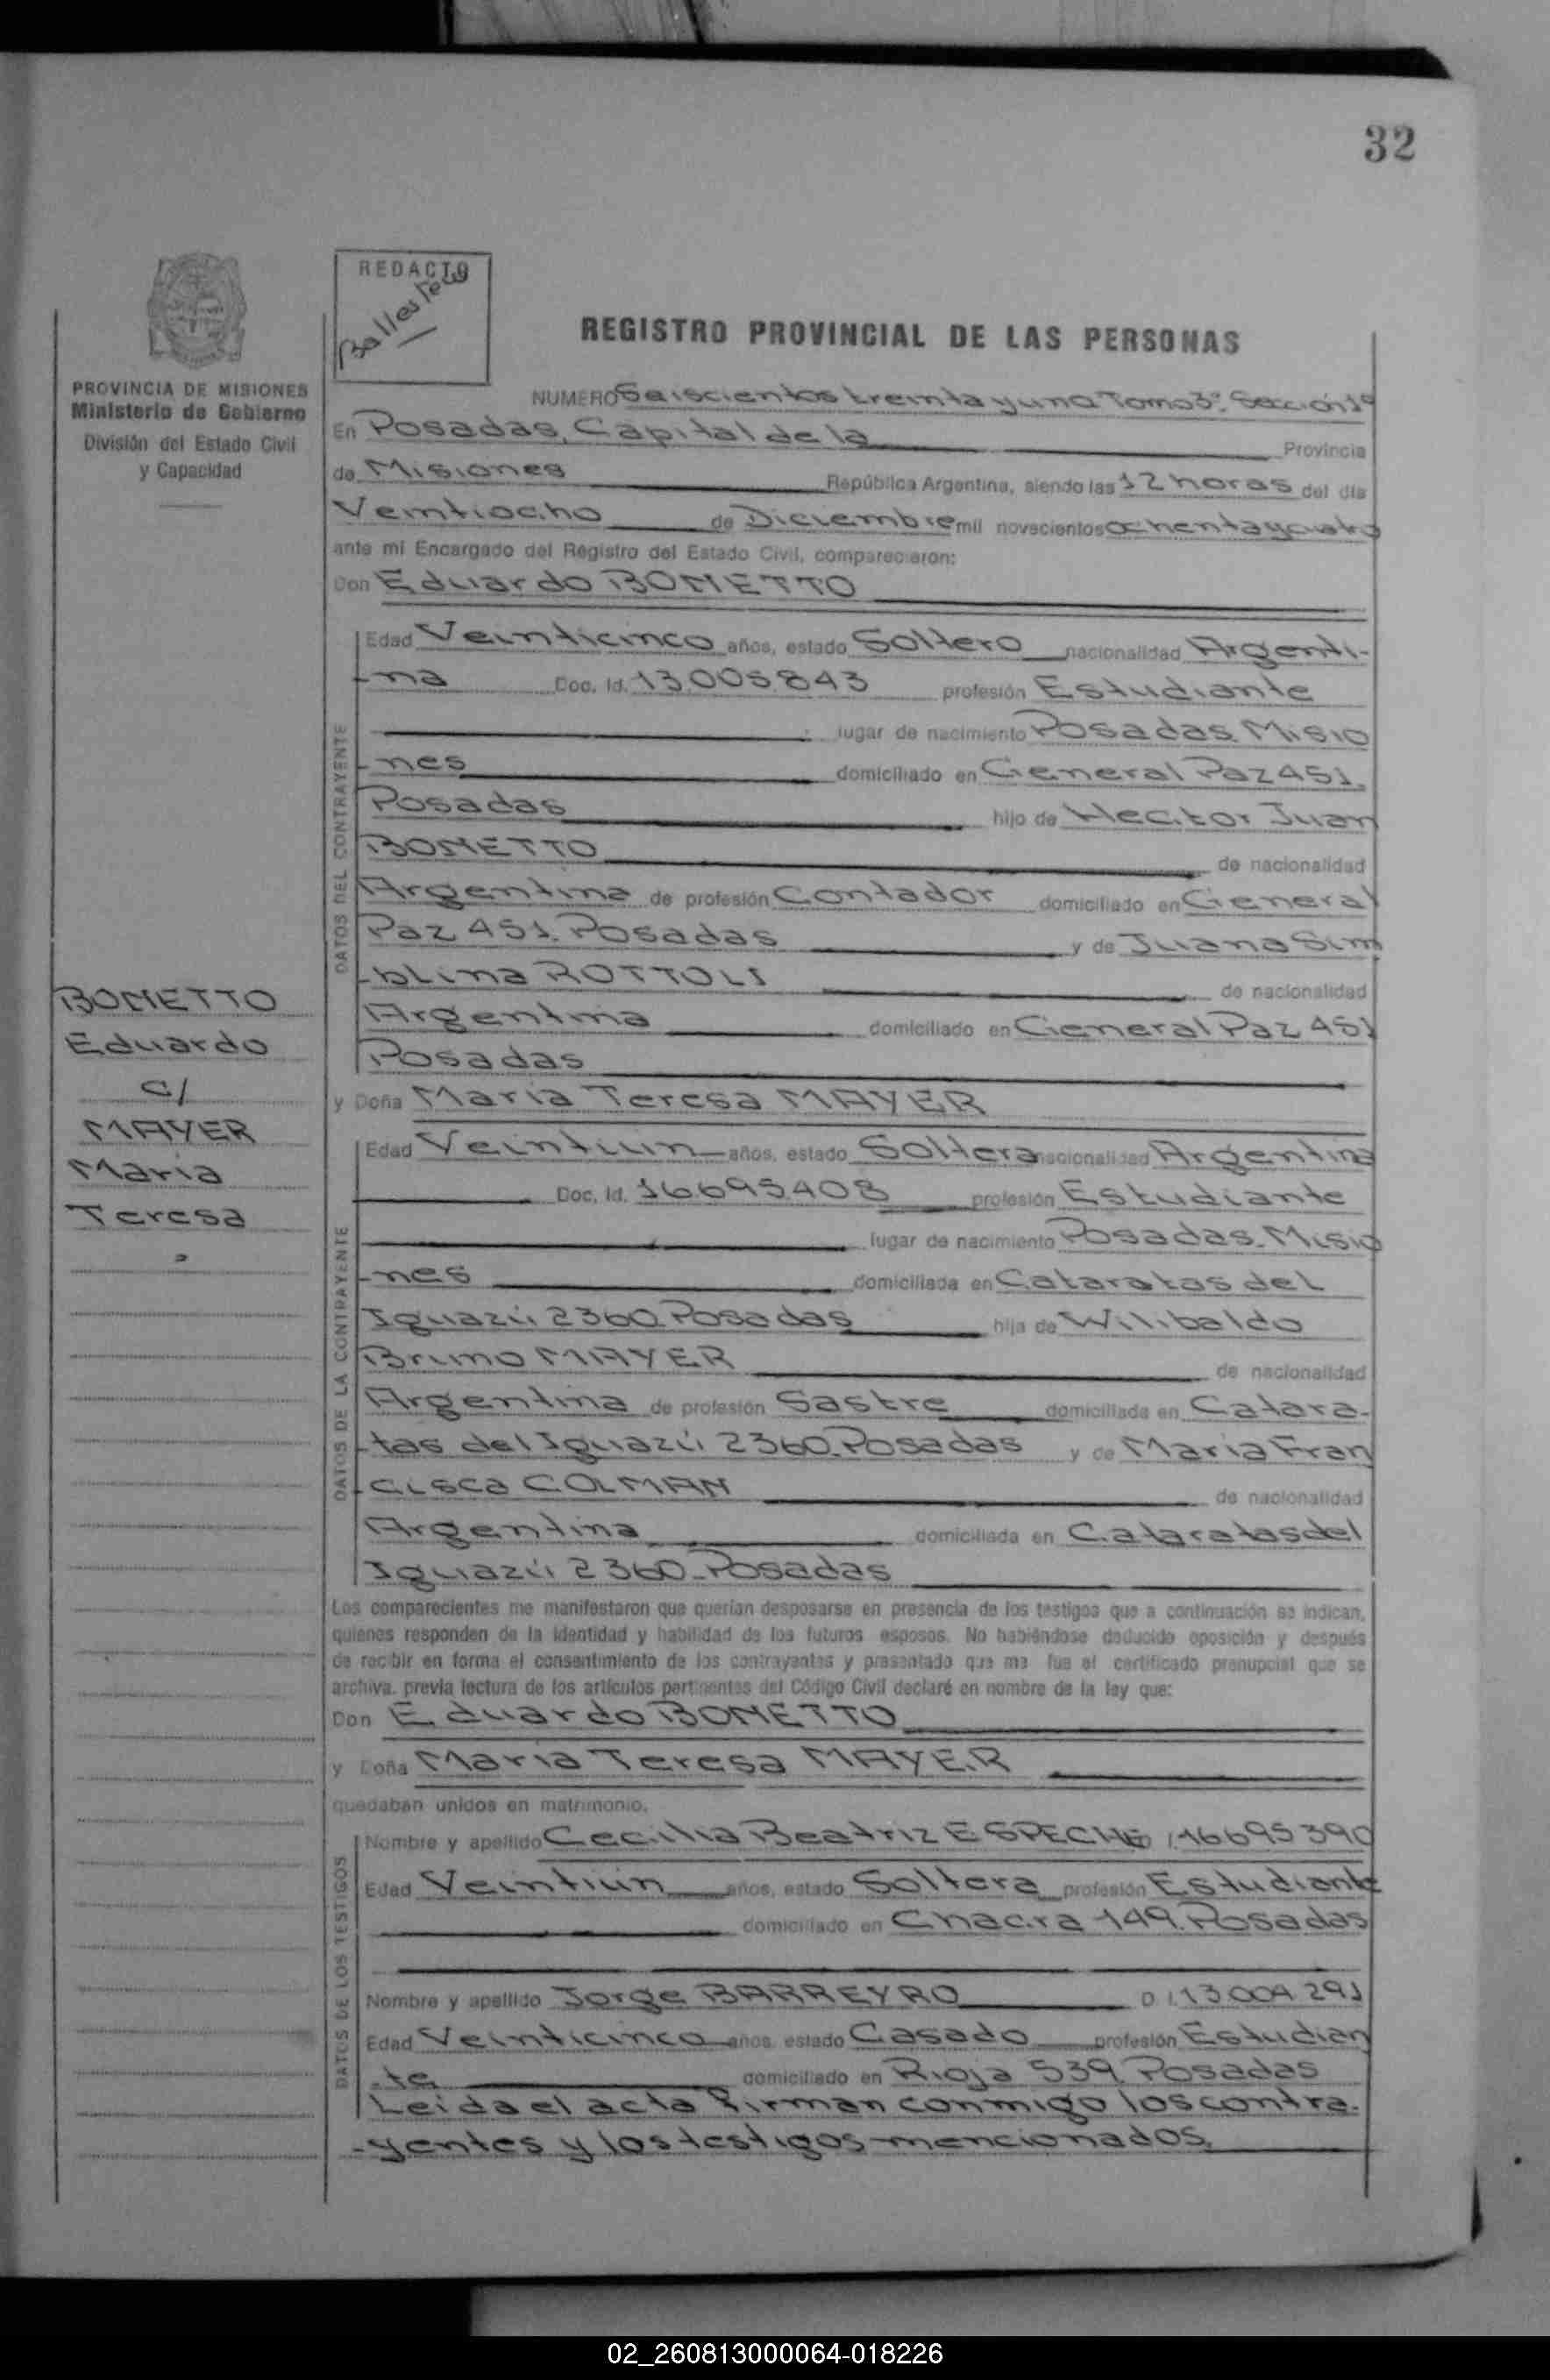 32
REDACTO
Ballestero
REGISTRO PROVINCIAL DE LAS PERSONAS
PROVINCIA DE MISIONES
Ministerio de Gobierno
División del Estado Civil
y Capacidad
NUMERO Seiscientos treinta y una Tomo 3º Sección 1º
En Posadas, Capital de la Provincia
de Misiones República Argentina, siendo las 12 horas del día
Veintiocho de Diciembre mil novecientos ochenta y cuatro
ante mi Encargado del Registro del Estado Civil, comparecieron:
Don Eduardo BONETTO
DATOS DEL CONTRAYENTE
Edad Veinticinco años, estado Soltero nacionalidad Argenti-
-na Doc. Id. 13.005.843 profesión Estudiante
lugar de nacimiento Posadas, Misio
-nes domiciliado en General Paz 451,
Posadas hijo de Hector Juan
BONETTO de nacionalidad
Argentina de profesión Contador domiciliado en General
Paz 451. Posadas y de Juana Sim
-blina ROTTOLI de nacionalidad
Argentina domiciliado en General Paz 451
Posadas
BONETTO
Eduardo
c/
MAYER
Maria
Teresa
y Doña Maria Teresa MAYER
DATOS DE LA CONTRAYENTE
Edad Veintiún años, estado Soltera nacionalidad Argentina
Doc. Id. 16695.408 profesión Estudiante
lugar de nacimiento Posadas. Misio
-nes domiciliada en Cataratas del
Iguazú 2360. Posadas hija de Wilibaldo
Bruno MAYER de nacionalidad
Argentina de profesión Sastre domiciliada en Catara-
-tas del Iguazú 2360. Posadas y de Maria Fran
-cisca COLMAN de nacionalidad
Argentina domiciliada en Cataratas del
Iguazú 2360. Posadas
Los comparecientes me manifestaron que querían desposarse en presencia de los testigos que a continuación se indican,
quienes responden de la identidad y habilidad de los futuros esposos. No habiéndose deducido oposición y después
de recibir en forma el consentimiento de los contrayentes y presentado que me fue el certificado prenupcial que se
archiva, previa lectura de los artículos pertinentes del Código Civil declaré en nombre de la ley que:
Don Eduardo BONETTO
y Doña Maria Teresa MAYER
quedaban unidos en matrimonio.
DATOS DE LOS TESTIGOS
Nombre y apellido Cecilia Beatriz ESPECHE 16695390
Edad Veintiún años, estado Soltera profesión Estudiante
domiciliado en Chacra 149. Posadas
Nombre y apellido Jorge BARREYRO D I. 13.004.291
Edad Veinticinco años, estado Casado profesión Estudian
-te domiciliado en Rioja 539. Posadas
Leida el acta firman conmigo los contra-
-yentes y los testigos mencionados.
02_260813000064-018226